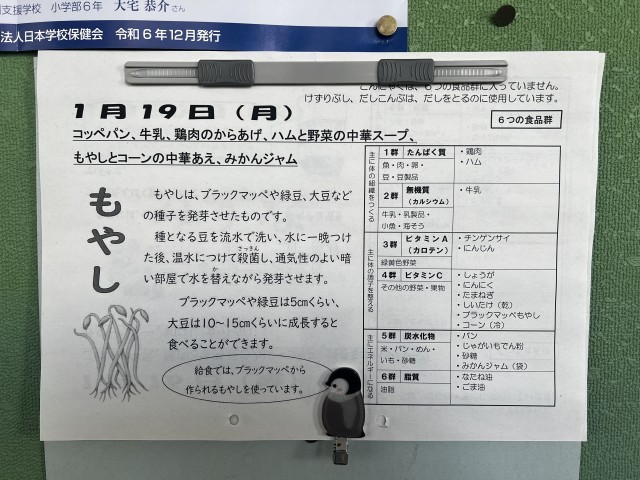 支援学校 小学部6年 大宅 恭介さん
法人日本学校保健会 令和6年12月発行
こんにゃくは、6つの食品群に入っていません。
けずりぶし、だしこんぶは、だしをとるのに使用しています。
1月19日(月)
6つの食品群
コッペパン、牛乳、鶏肉のからあげ、ハムと野菜の中華スープ、
もやしとコーンの中華あえ、みかんジャム
もやし
もやしは、ブラックマッペや緑豆、大豆など
の種子を発芽させたものです。
種となる豆を流水で洗い、水に一晩つけ
さっきん
た後、温水につけて殺菌し、通気性のよい暗
か
い部屋で水を替えながら発芽させます。
ブラックマッペや緑豆は5cmくらい、
大豆は10~15cmくらいに成長すると
食べることができます。
給食では、ブラックマッペから
作られるもやしを使っています。
主に体の組織をつくる
1群 たんぱく質
魚・肉・卵・
豆・豆製品
・鶏肉
・ハム
2群 無機質
(カルシウム)
牛乳・乳製品・
小魚・海そう
・牛乳
主に体の調子を整える
3群 ビタミンA
(カロテン)
緑黄色野菜
・チンゲンサイ
・にんじん
4群 ビタミンC
その他の野菜・果物
・しょうが
・にんにく
・たまねぎ
・しいたけ(乾)
・ブラックマッペもやし
・コーン(冷)
主にエネルギーになる
5群 炭水化物
米・パン・めん・
いも・砂糖
・パン
・じゃがいもでん粉
・砂糖
・みかんジャム(袋)
6群 脂質
油脂
・なたね油
・ごま油